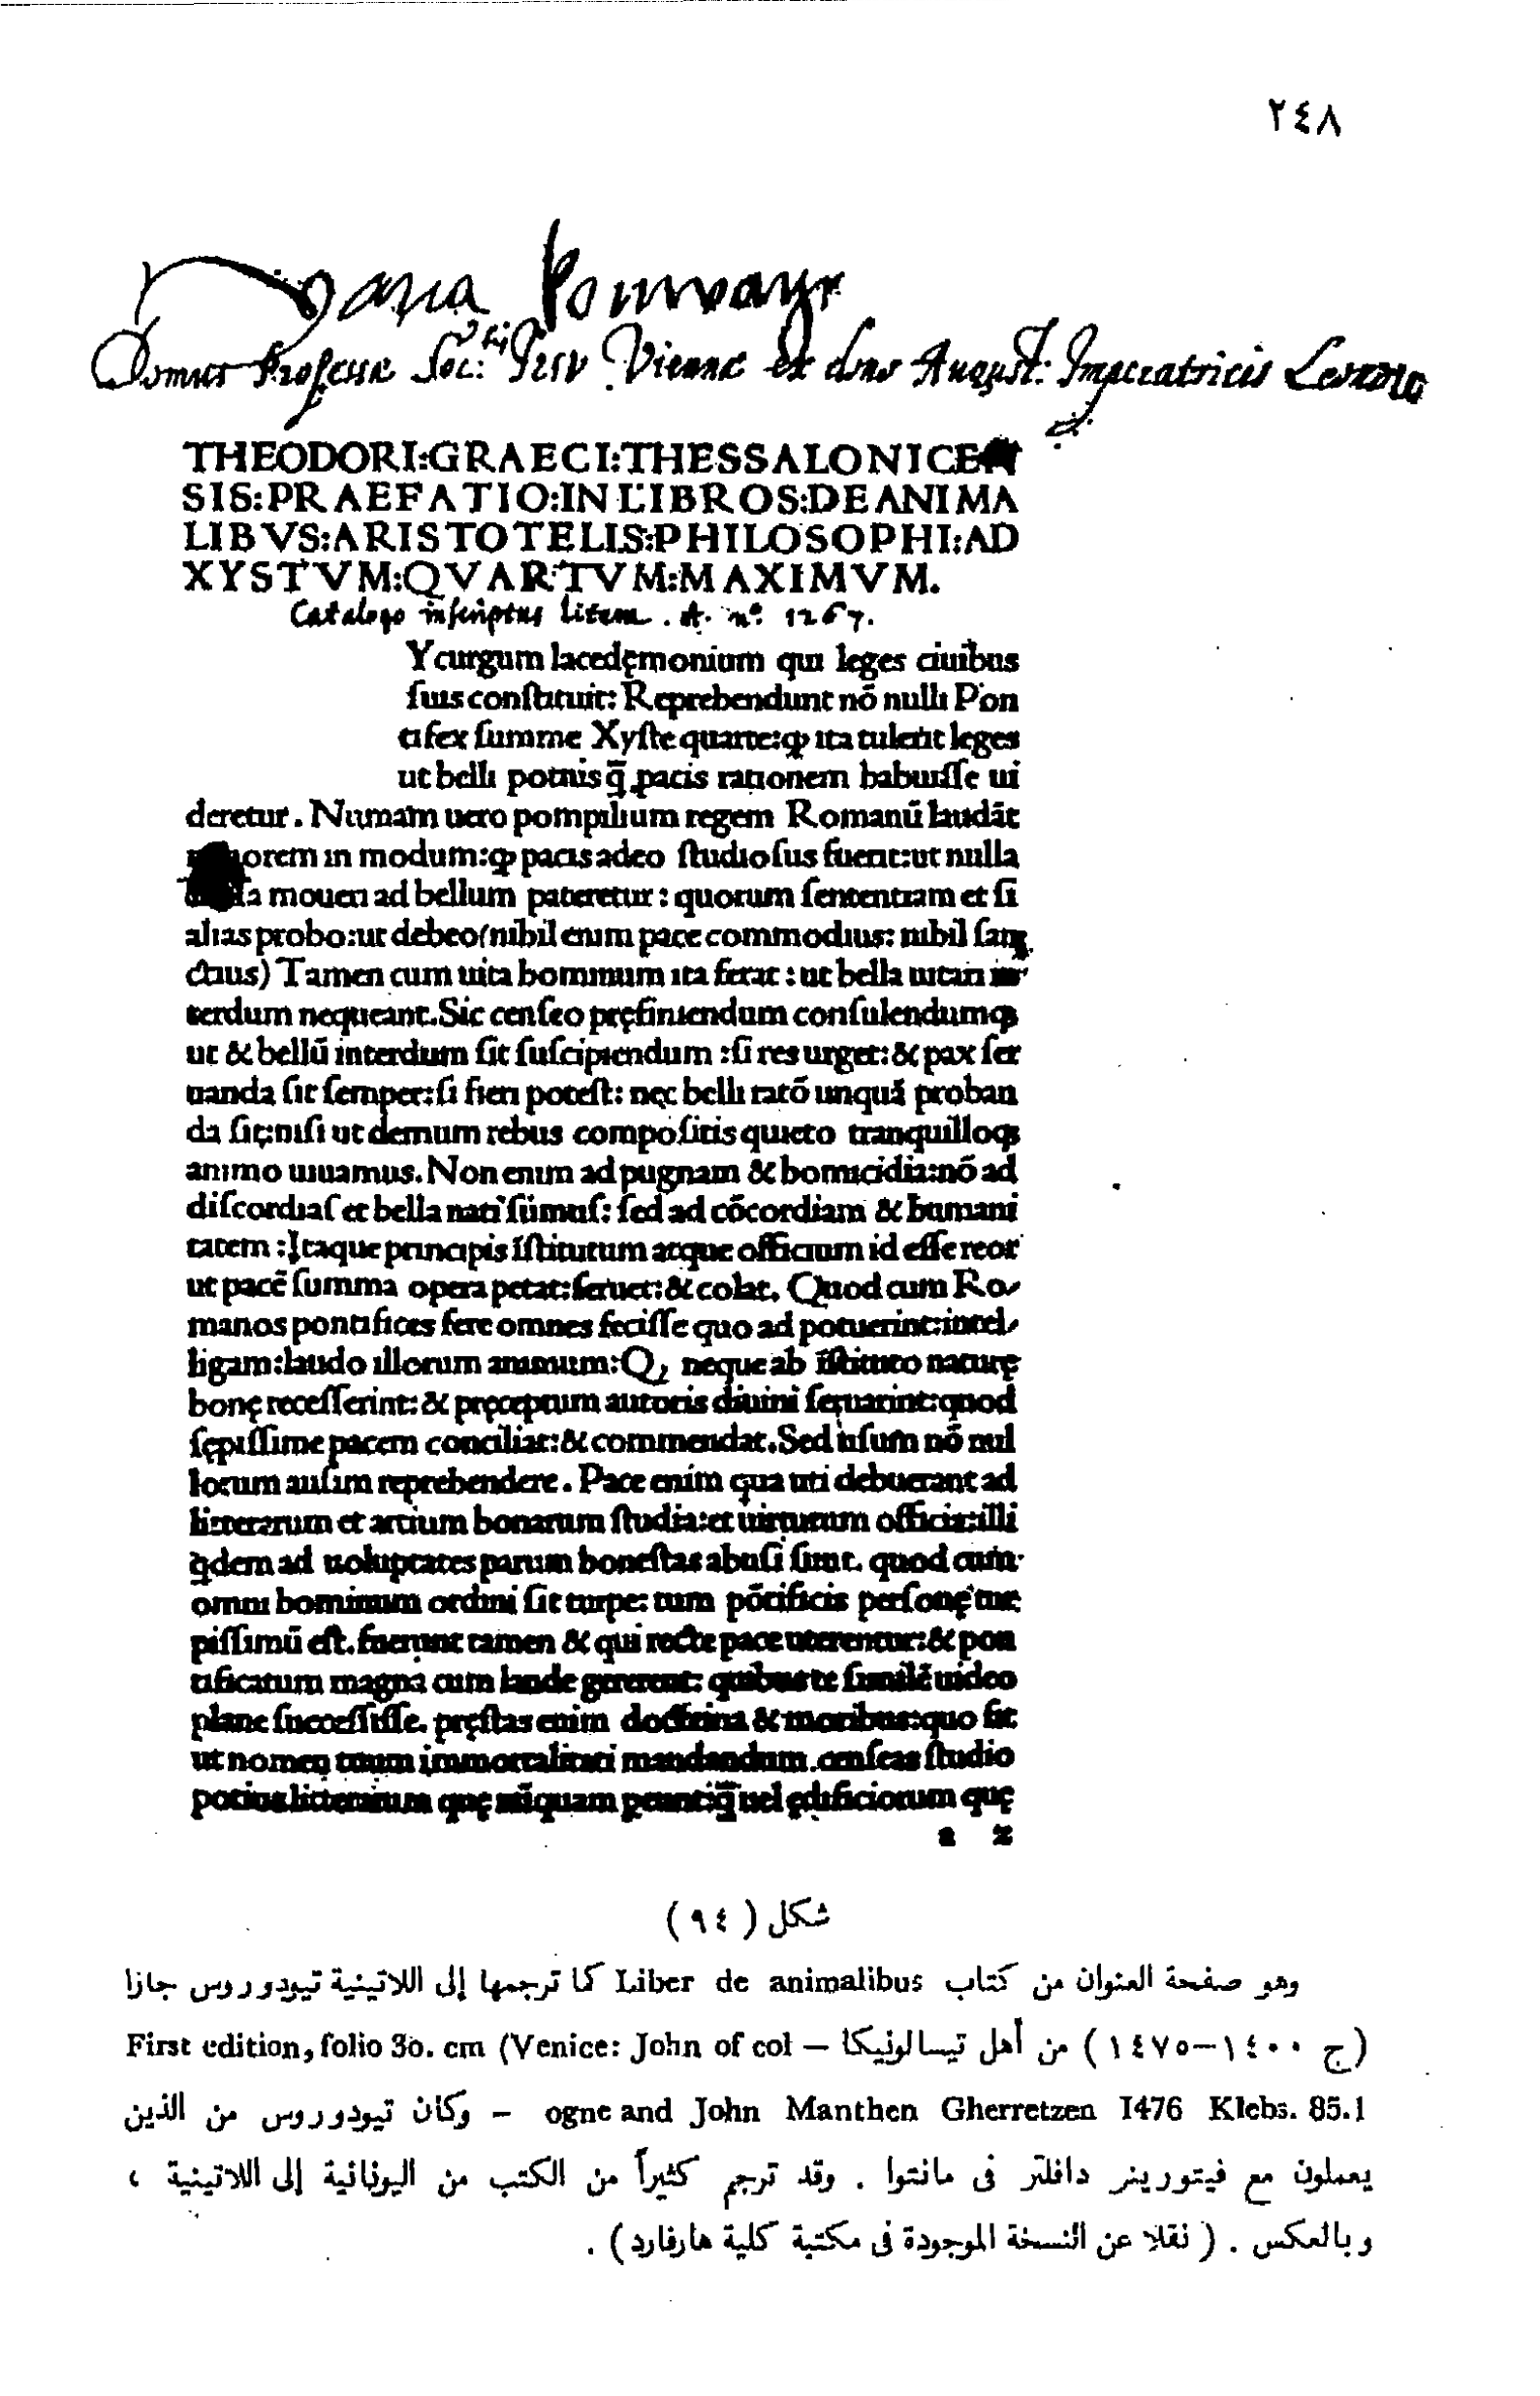 ٢٤٨
Domus Professae Soc: Iesu Viennae ex dono August: Imperatricis
THEODORI:GRAECI:THESSALONICEN
SIS:PRAEFATIO:IN LIBROS:DE ANIMA
LIBVS:ARISTOTELIS:PHILOSOPHI:AD
XYSTVM:QVARTVM:MAXIMVM.
Catalogo inscriptus litera . A. nº. 1267.
Ycurgum lacedęmonium qui leges ciuibus
suis constituit: Reprehendunt nō nulli Pon
tifex summe Xyste quarte:ꝙ ita tulerit leges
ut belli potius q̄ pacis rationem habuisse ui
deretur. Numam uero pompilium regem Romanū laudāt
orem in modum:ꝙ pacis adeo studiosus fuerit:ut nulla
moueri ad bellum pateretur: quorum sententiam et si
alias probo:ut debeo(nihil enim pace commodius: nihil san
ctius) Tamen cum uita hominum ita ferat: ut bella uitari in
terdum nequeant. Sic censeo pręfiniendum consulendumqꝫ
ut & bellū interdum sit suscipiendum :si res urget:& pax ser
uanda sit semper:si fieri potest: nec belli ratō unquā proban
da sit:nisi ut demum rebus compositis quieto tranquilloqꝫ
animo uiuamus. Non enim ad pugnam & homicidia:nō ad
discordias et bella nati sumus: sed ad cōcordiam & humani
tatem :Itaque principis īstitutum atque officium id esse reor
ut pacē summa opera petat:seruet:& colat. Quod cum Ro-
manos pontifices fere omnes fecisse quo ad potuerint:intel-
ligam:laudo illorum animum:Q, neque ab īstituto naturę
bonę recesserint:& pręceptum autoris diuini seruarint:quod
sępissime pacem conciliat:& commendat. Sed usum nō nul
lorum ausim reprehendere. Pace enim qua uti debuerant ad
litterarum et artium bonarum studia:et uirtutum officia:illi
q̇dem ad uoluptates parum honestas abusi sunt. quod cum
omni hominum ordini sit turpe: tum pōtificis personę tur
pissimū est. fuerunt tamen & qui recte pace uterentur:& pon
tificatum magna cum laude gererent: quibus te similē uideo
plane successisse. pręstas enim doctrina & moribus:quo fit
ut nomen tuum immortalitati mandandum censeas studio
potius litterarum quę nūquam pereant:q̄ uel ędificiorum quę
a 2
شكل ( ٩٤ )
وهو صفحة العنوان من كتاب Liber de animalibus كما ترجمها إلى اللاتينية تيودوروس جازا
(ج ١٤٠٠–١٤٧٥) من أهل تيسالونيكا – First edition, folio 30. cm (Venice: John of col
ogne and John Manthen Gherretzen 1476 Klebs. 85.1 – وكان تيودوروس من الذين
يعملون مع فيتورينر دافلتر فى مانتوا . وقد ترجم كثيراً من الكتب من اليونانية إلى اللاتينية ،
وبالعكس . ( نقلا عن النسخة الموجودة فى مكتبة كلية هارفارد ) .